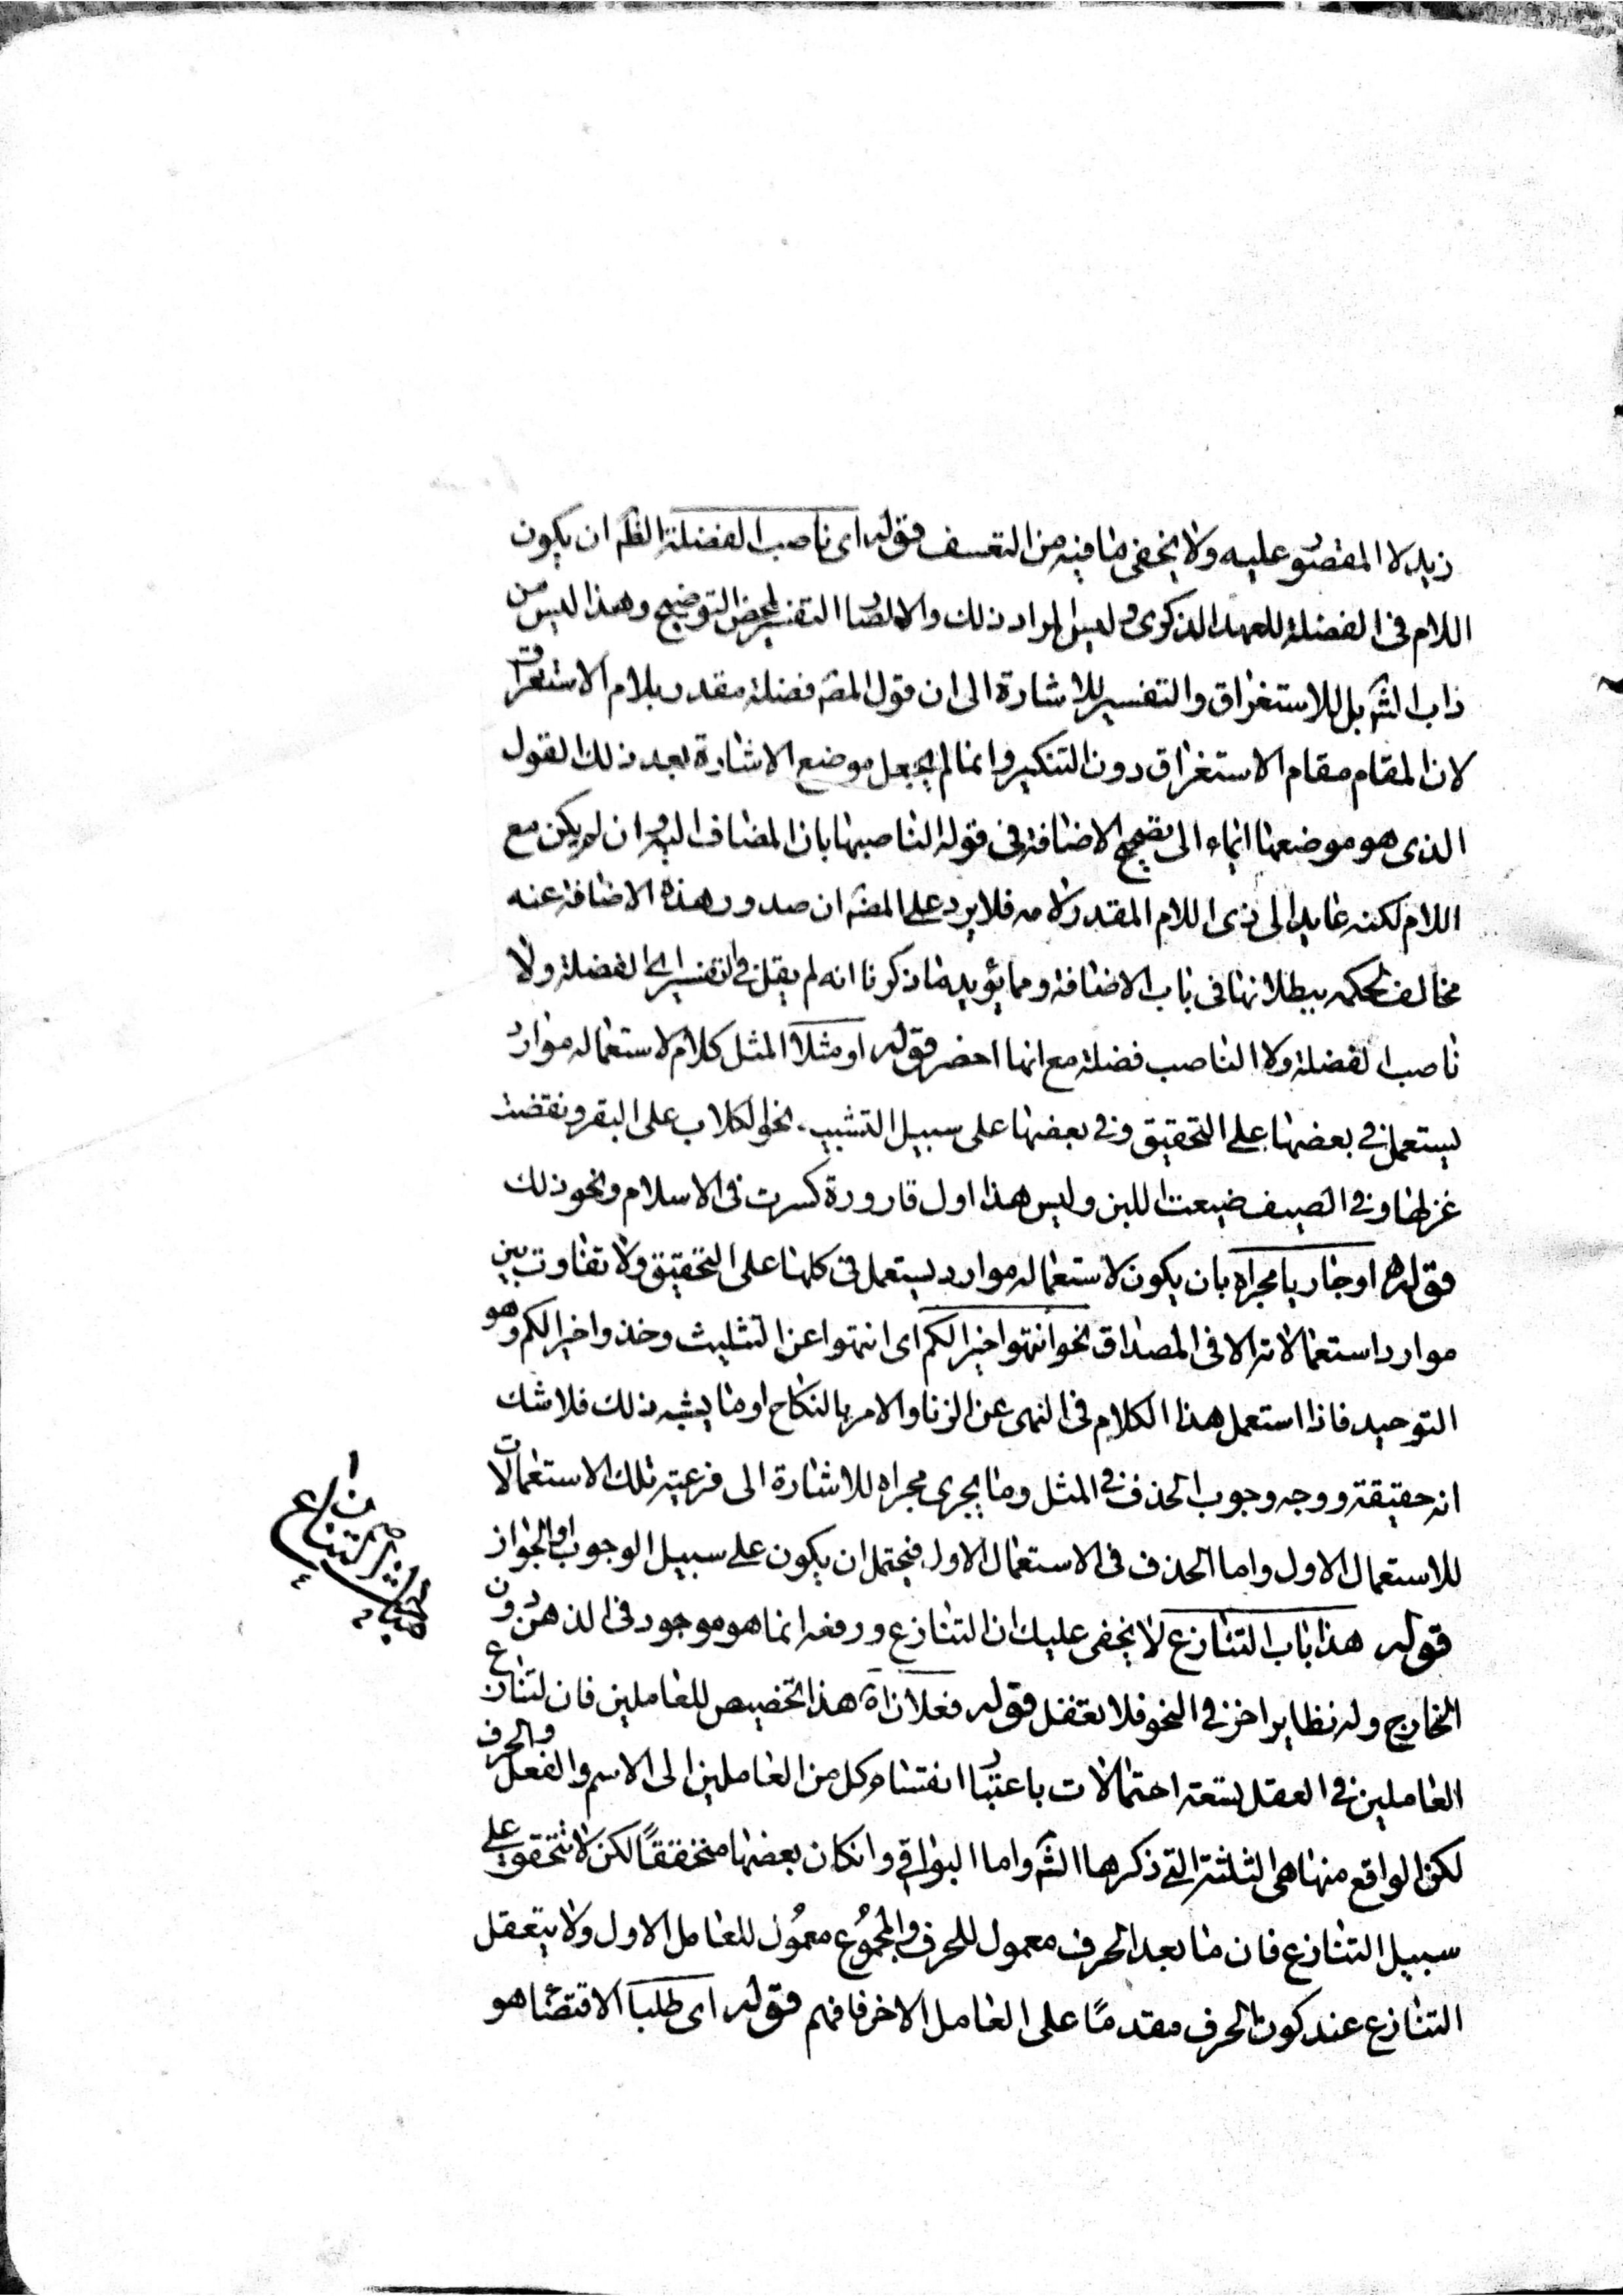 زيد لا المقصور عليه ولا يخفى ما فيه من التعسف قوله اى ناصب الفضلة الظ ان يكون
اللام فى الفضلة للعهد الذكرى وليس المراد ذلك والا لصار التفسير لمحض التوضيح وهذا ليس من
داب الش بل للاستغراق والتفسير للاشارة الى ان قول المص فضلة مقدر بلام الاستغراق
لان المقام مقام الاستغراق دون التنكير وانما لم يجعل موضع الاشارة بعد ذلك القول
الذى هو موضعها ايماء الى تصحيح الاضافة فى قوله الناصبها بان المضاف اليه وان لم يكن مع
اللام لكنه عايد الى ذى اللام المقدر لامه فلا يرد على المص ان صدور هذه الاضافة عنه
مخالف لحكمه ببطلانها فى باب الاضافة ومما يؤيد ما ذكرنا انه لم يقل فى التفسير اى الفضلة ولا
ناصب الفضلة ولا الناصب فضلة مع انها اخصر قوله او مثلا المثل كلام لاستعماله موارد
يستعمل فى بعضها على التحقيق وفى بعضها على سبيل التشبيه نحو الكلاب على البقر ونقضت
غزلها وفى الصيف ضيعت اللبن وليس هذا اول قارورة كسرت فى الاسلام ونحو ذلك
قوله او جاريا مجراه بان يكون لاستعماله موارد يستعمل فى كلها على التحقيق ولا تفاوت بين
موارد استعمالاته الا فى المصداق نحو انتهوا خيرا لكم اى انتهوا عن التثليث وخذوا خيرا لكم وهو
التوحيد فاذا استعمل هذا الكلام فى النهى عن الزنا والامر بالنكاح او ما يشبه ذلك فلا شك
انه حقيقة ووجه وجوب الحذف فى المثل وما يجرى مجراه للاشارة الى فرعية تلك الاستعمالات
للاستعمال الاول واما الحذف فى الاستعمال الاول فيحتمل ان يكون على سبيل الوجوب او الجواز
قوله هذا باب التنازع لا يخفى عليك ان التنازع ورفعه انما هو موجود فى الذهن دون
الخارج وله نظاير اخر فى النحو فلا تغفل قوله فعلان اه هذا تخصيص للعاملين فان لتنازع
العاملين فى العقل تسعة احتمالات باعتبار انقسام كل من العاملين الى الاسم والفعل والحرف
لكن الواقع منها هى الثلثة التى ذكرها الش واما البواقى وان كان بعضها متحققا لكن لا تتحقق على
سبيل التنازع فان ما بعد الحرف معمول للحرف والمجموع معمول للعامل الاول ولا يتعقل
التنازع عند كون الحرف مقدما على العامل الاخر فافهم قوله اى طلبا الاقتضاء هو